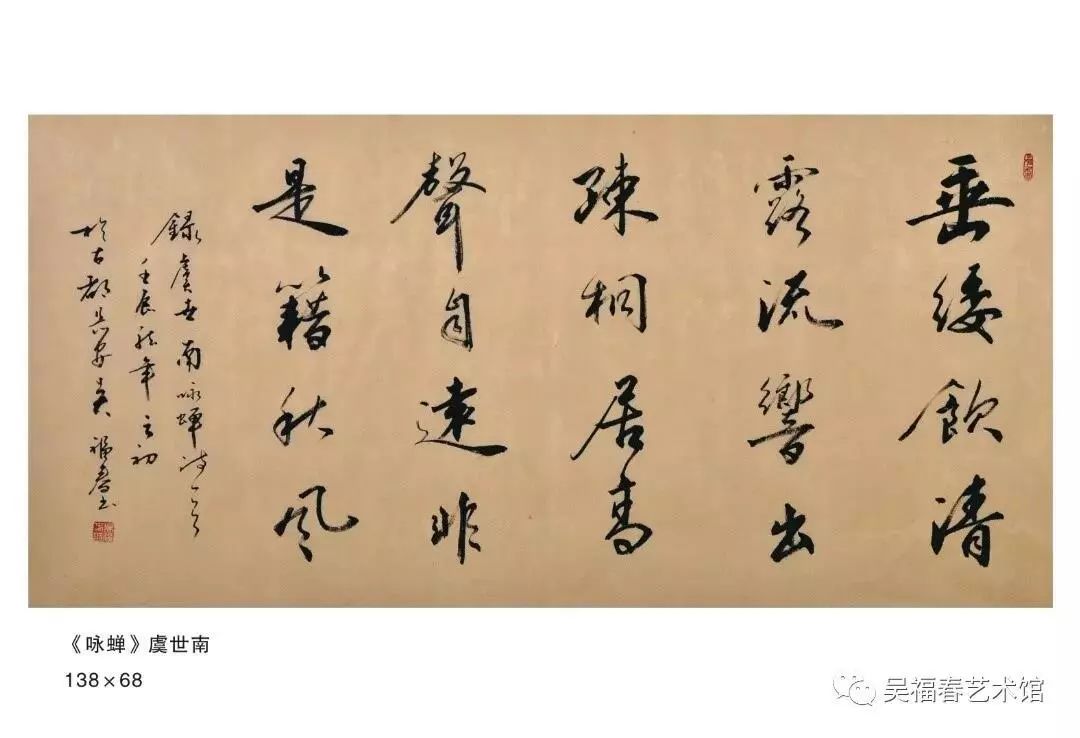 垂緌飲清
露流響出
疎桐居高
聲自遠非
是籍秋風
録虞世南咏蝉诗一首
壬辰龙年之初
於古都長安吴福春书
《咏蝉》虞世南
138×68
吴福春艺术馆